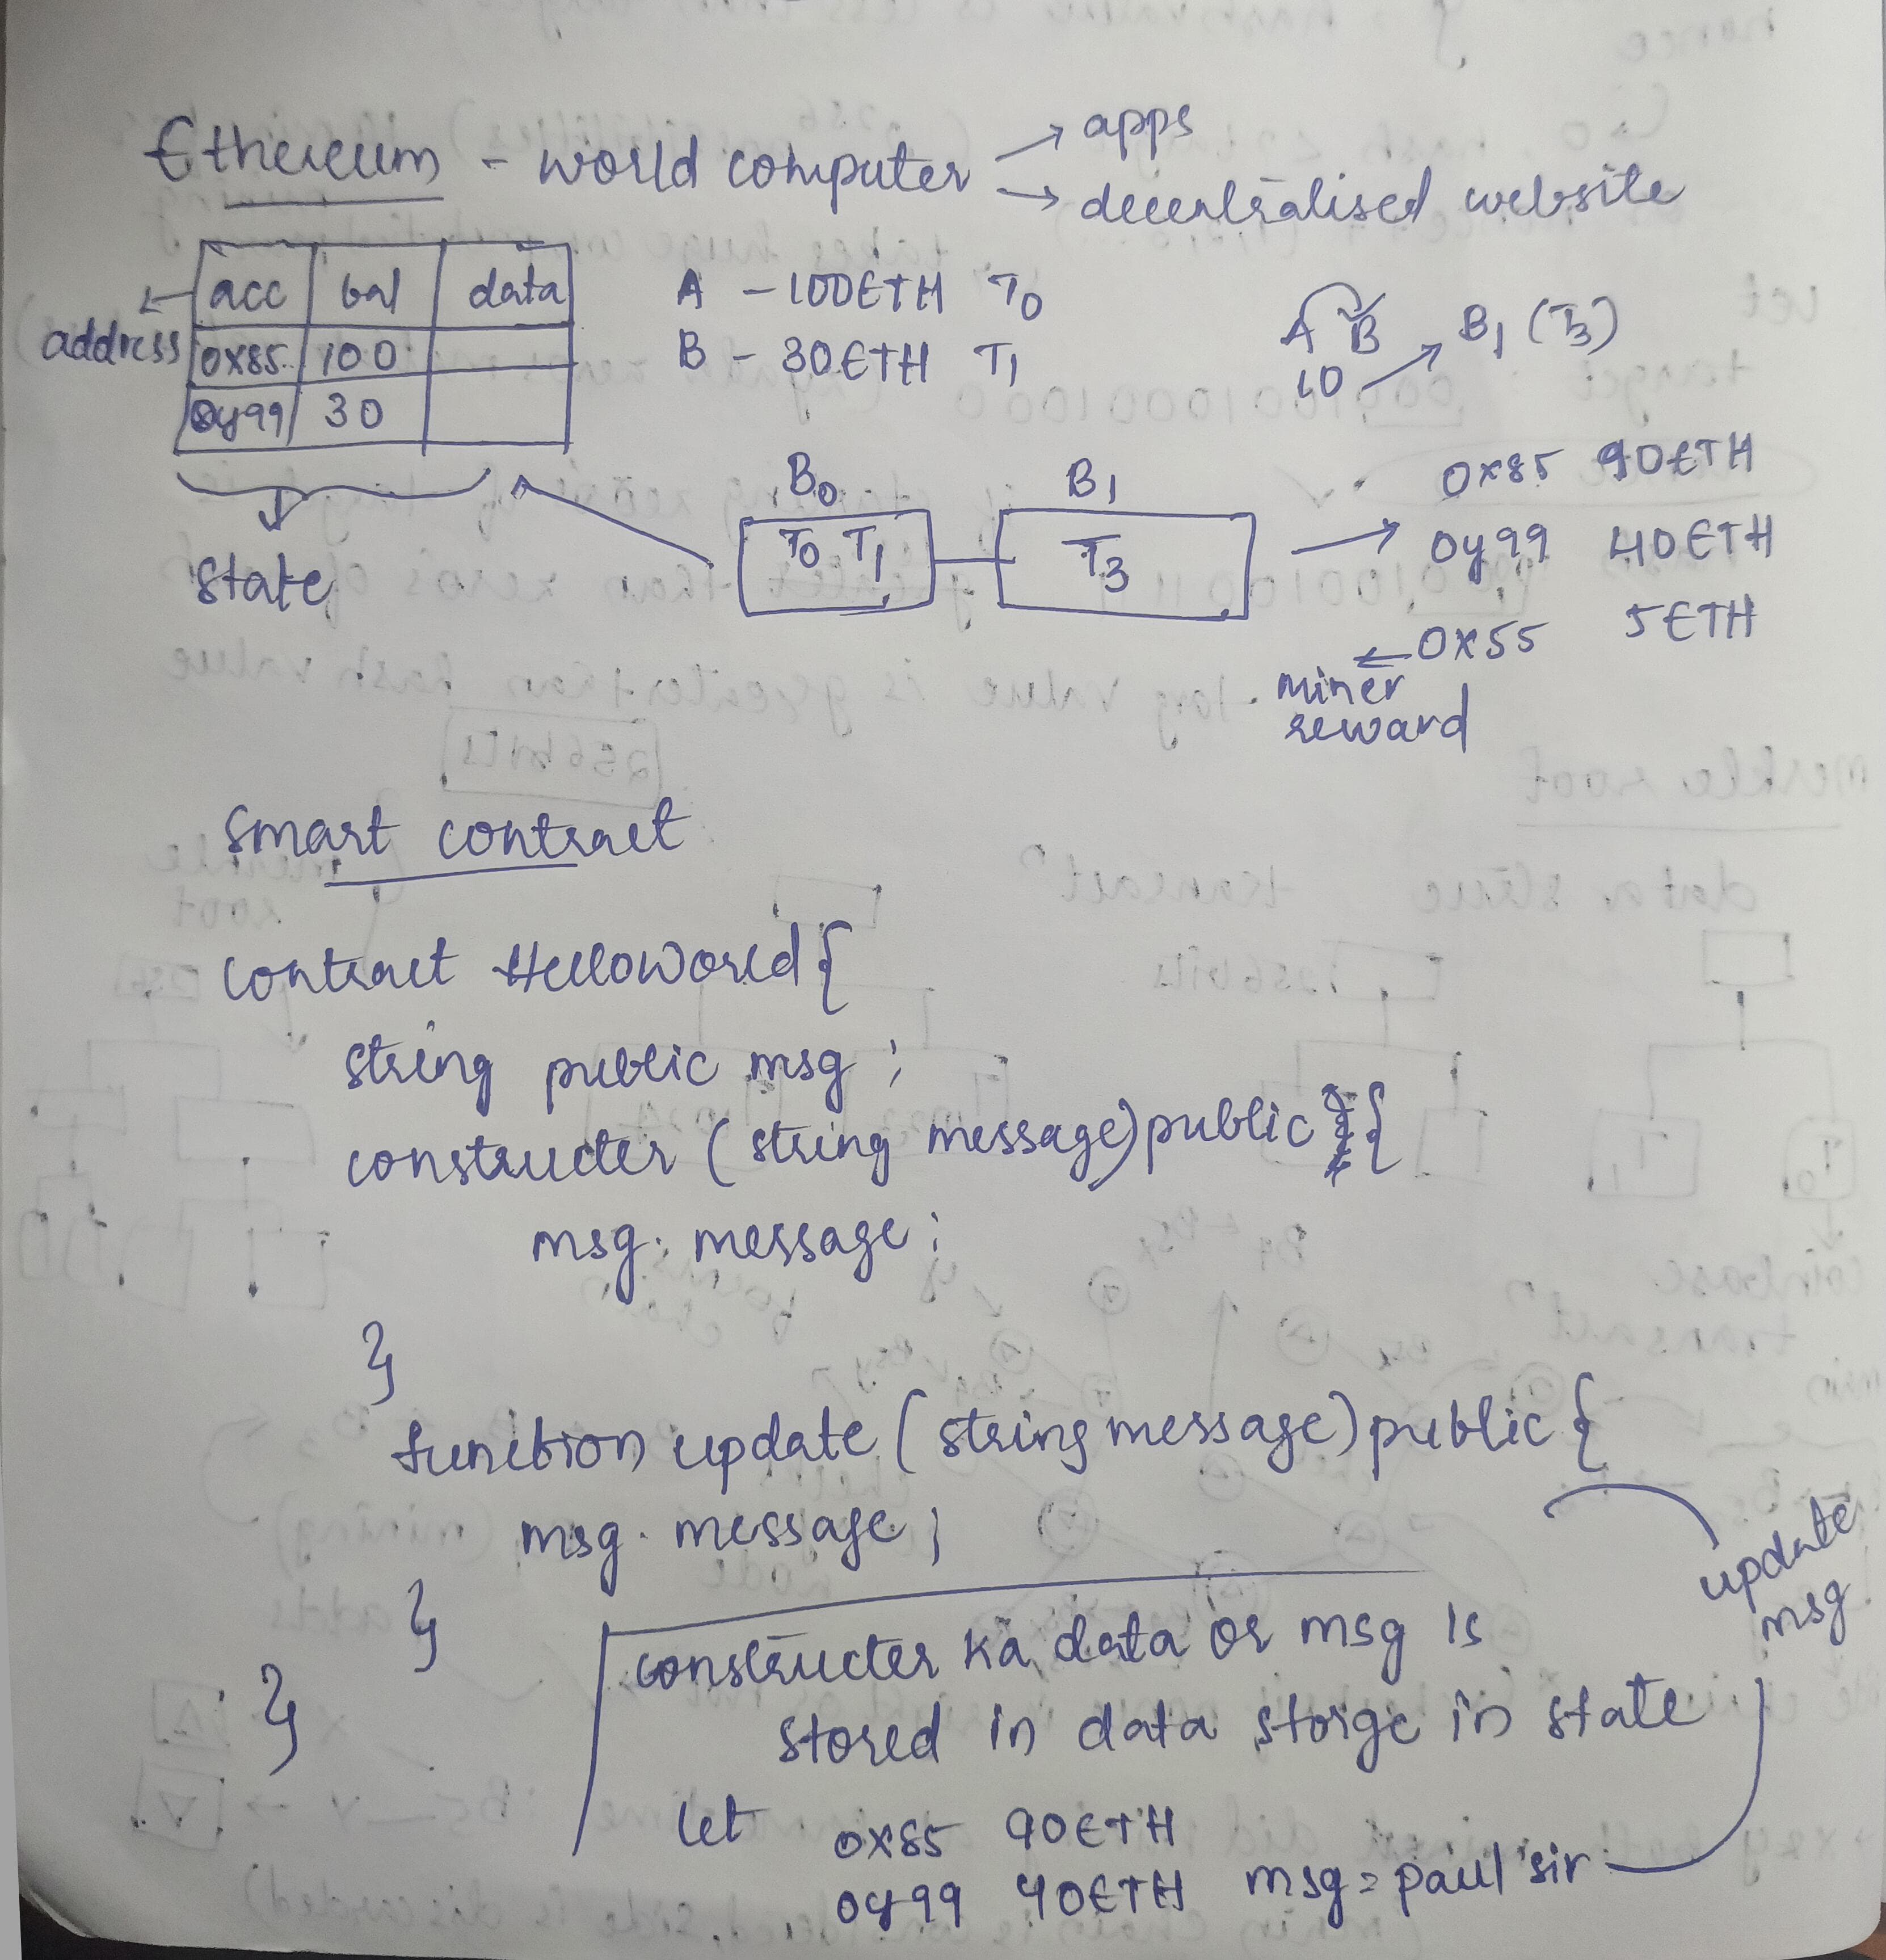 Ethereum - world computer → apps
→ decentralised website
acc bal data
address
0x85 100
0y99 30
A - 100ETH T0
B - 30ETH T1
A B
10 → B1 (T3)
state
B0 B1
T0 T1 T3
0x85 90ETH
0y99 40ETH
0x55 5ETH
miner
reward
Smart contract
contract HelloWorld{
string public msg ;
constructer (string message)public {
msg. message;
}
function update (string message) public {
msg. message ;
}
}
update
msg
constructer ka data or msg is
stored in data storge in state
let 0x85 90ETH
0y99 40ETH msg = paul sir